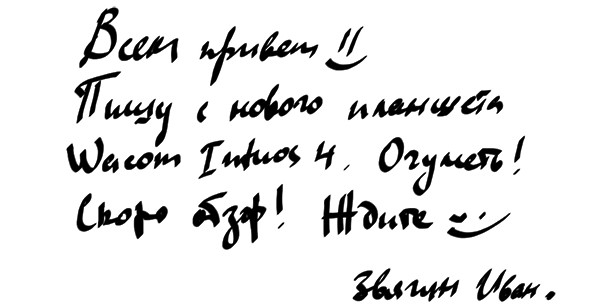 Всем привет !!
Пишу с нового планшета
Wacom Intuos 4. Огуметь!
Скоро обзор! Ждите
Звягин Иван.